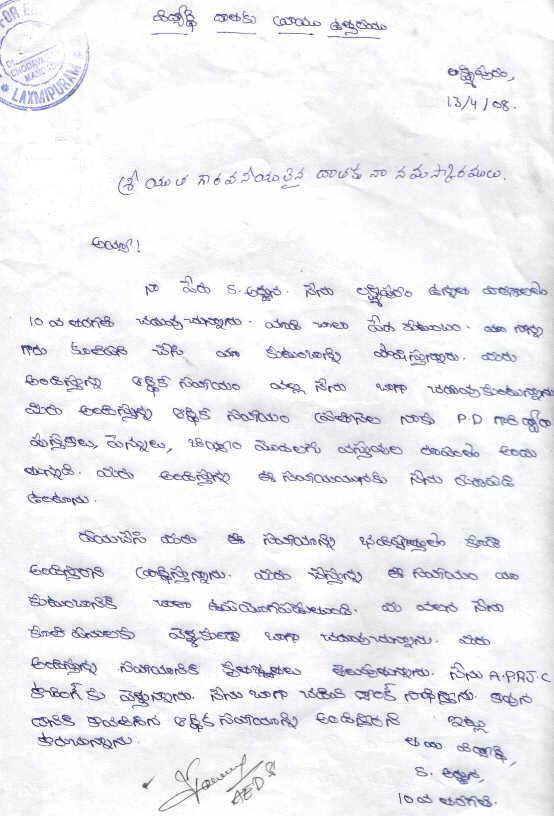 విద్యార్థి దాతకు వ్రాయు ఉత్తరము
LAXMIPURAM
లక్ష్మిపురం,
13/4/08.
శ్రీ యుత గౌరవనీయులైన దాతకు నా నమస్కారములు.
అయ్యా!
నా పేరు S. అర్జున. నేను లక్ష్మిపురం ఉన్నత పాఠశాలలో
10 వ తరగతి చదువుచున్నాను. మాది చాలా పేద కుటుంబం. మా నాన్న
గారు కూలిపని చేసి మా కుటుంబాన్ని పోషిస్తున్నారు. మీరు
అందిస్తున్న ఆర్థిక సహాయం వల్ల నేను బాగా చదువుకుంటున్నాను
మీరు అందిస్తున్న ఆర్థిక సహాయం ప్రతినెల నాకు P.D గారి ద్వారా
పుస్తకాలు, పెన్నులు, బియ్యం మొదలగు వస్తువుల రూపంలో అందు
తున్నది. మీరు అందిస్తున్న ఈ సహాయమునకు నేను రుణపడి
ఉంటాను.
దయచేసి మీరు ఈ సహాయాన్ని భవిష్యత్తులో కూడా
అందిస్తారని ప్రార్థిస్తున్నాను. మీరు చేస్తున్న ఈ సహాయం మా
కుటుంబానికి చాలా ఉపయోగపడుతుంది. మీ వలన నేను
కూలి పనులకు వెళ్ళకుండా బాగా చదువుచున్నాను. మీరు
అందిస్తున్న సహాయానికి కృతజ్ఞతలు తెలుపుతున్నాను. నేను A.P.R.J.C
కోచింగ్ కు వెళ్తున్నాను. నేను బాగా చదివి ర్యాంక్ సాధిస్తాను.
దానికి కావలసిన ఆర్థిక సహాయాన్ని అందిస్తారని
కోరుచున్నాను.
ఇట్లు
మీ విద్యార్థి,
S. అర్జున,
10 వ తరగతి.